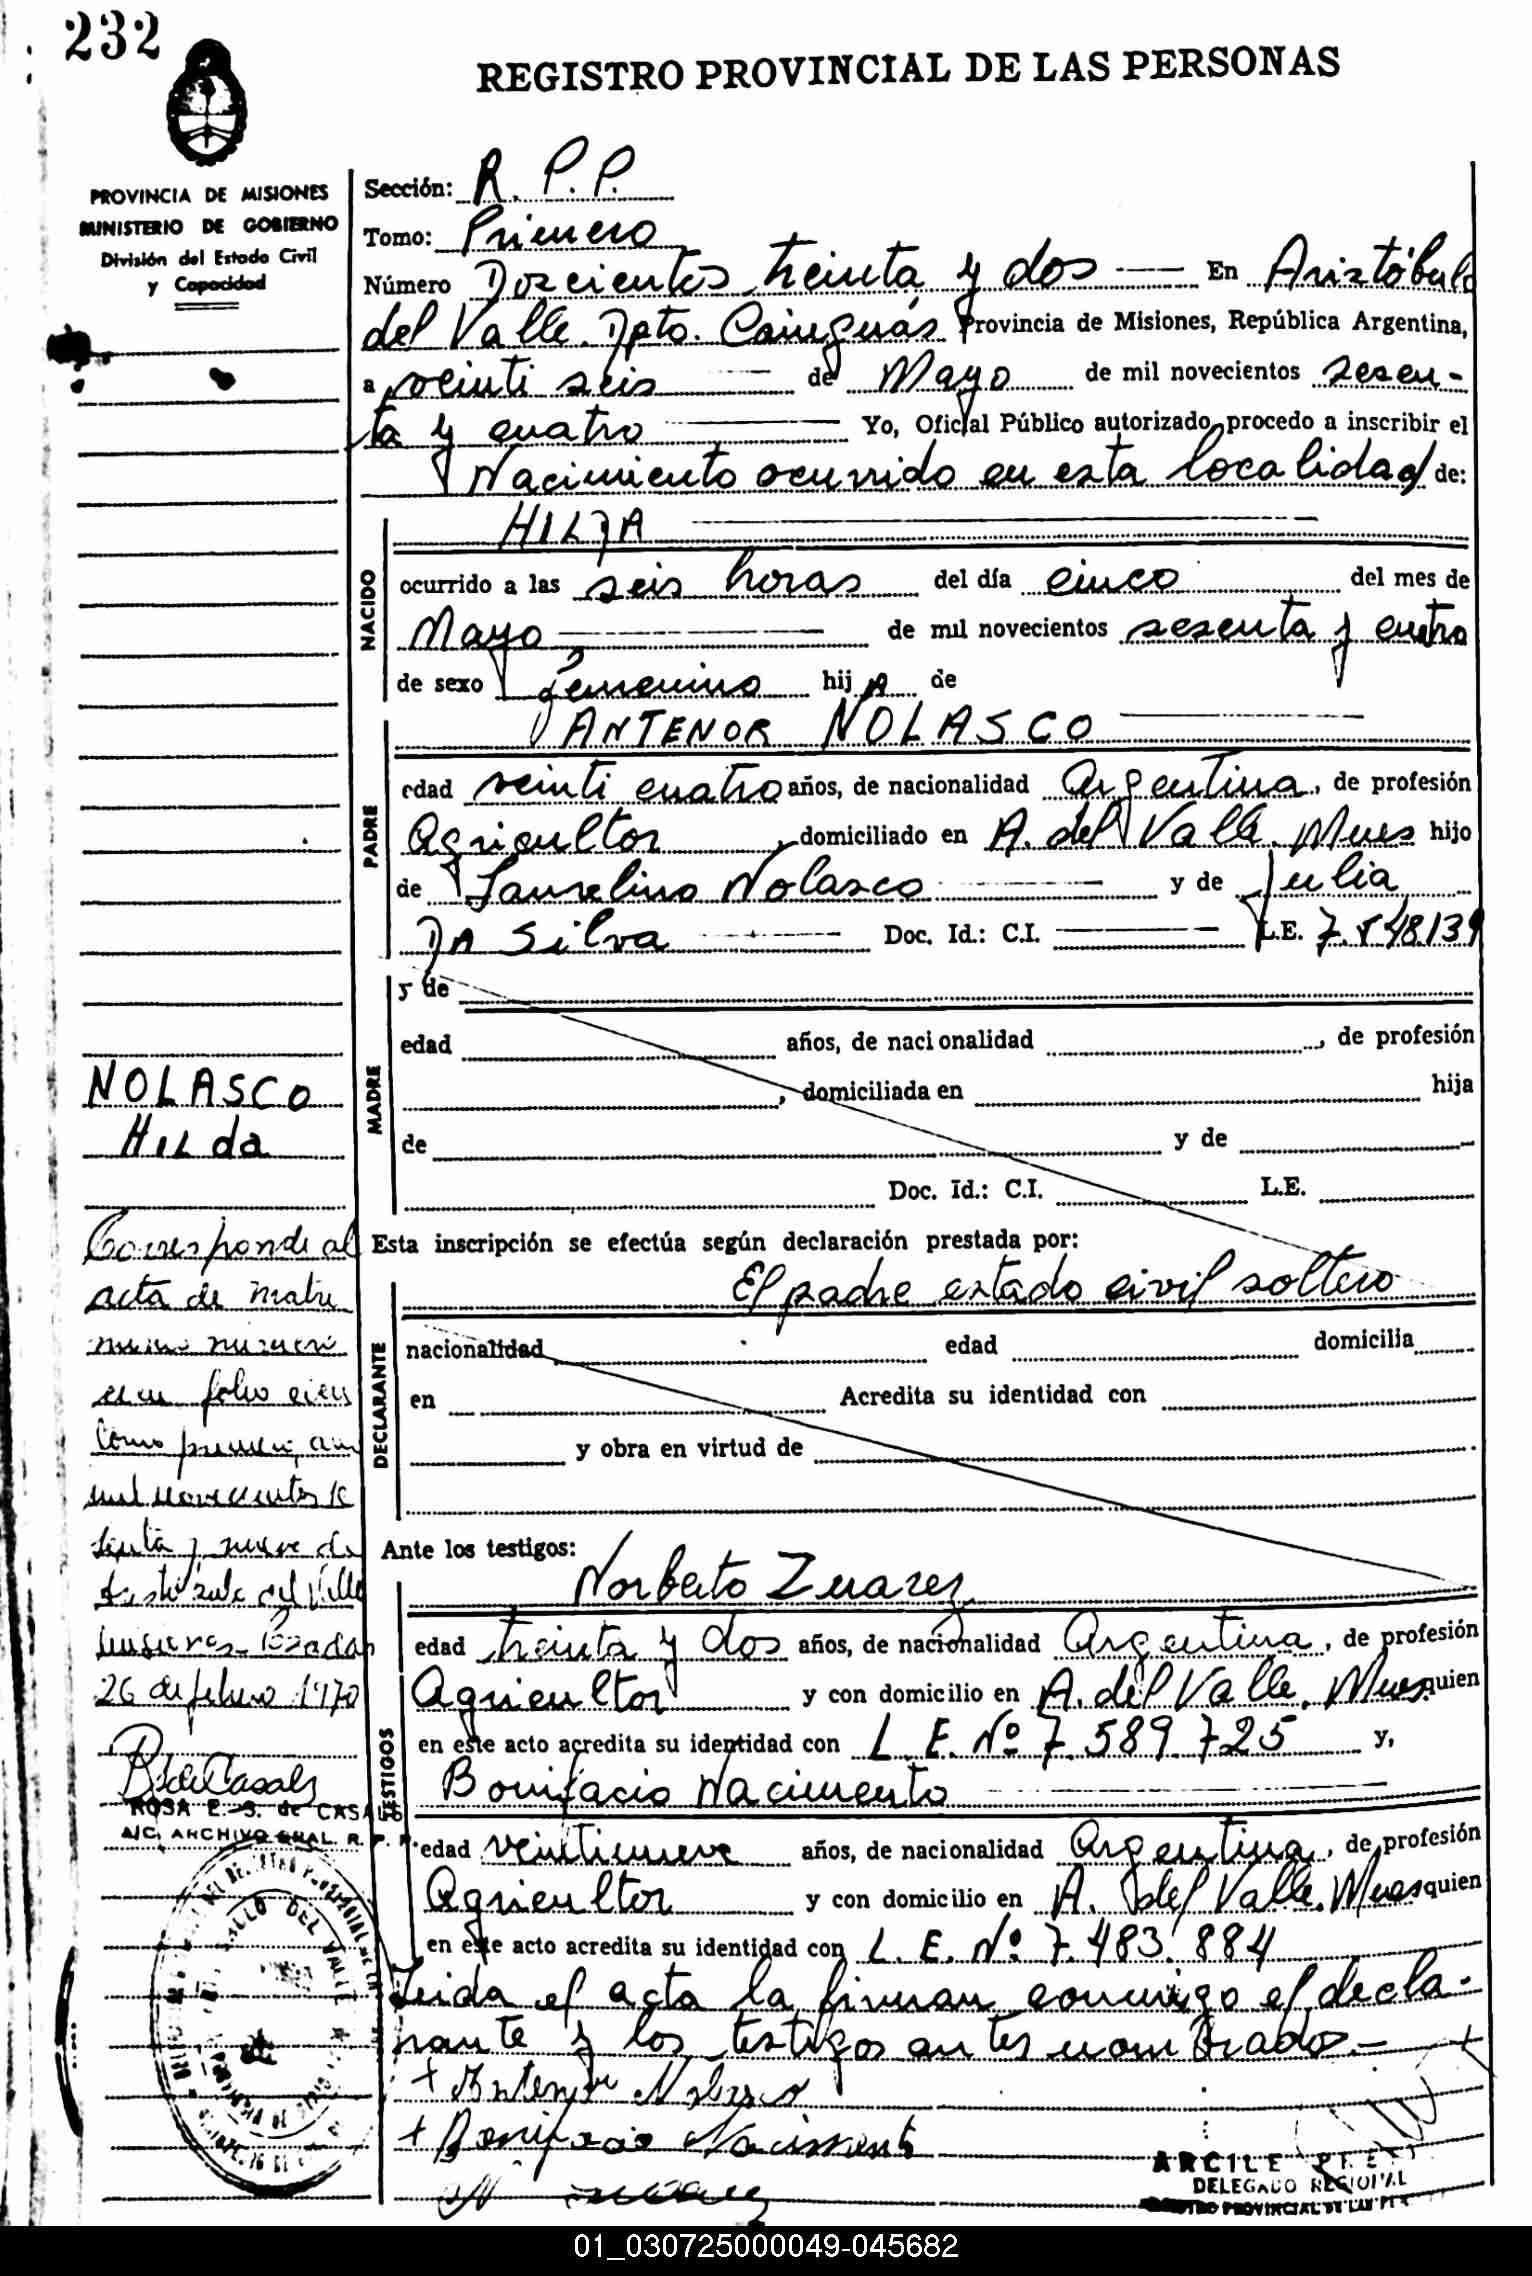 232
REGISTRO PROVINCIAL DE LAS PERSONAS
PROVINCIA DE MISIONES
MINISTERIO DE GOBIERNO
División del Estado Civil
y Capacidad
Sección: R. P. P.
Tomo: Primero
Número Doscientos treinta y dos En Aristóbulo
del Valle. Dpto. Cainguás Provincia de Misiones, República Argentina,
a veinti seis de Mayo de mil novecientos sesen-
ta y cuatro Yo, Oficial Público autorizado procedo a inscribir el
Nacimiento ocurrido en esta localidad de:
NACIDO
HILDA
ocurrido a las seis horas del día cinco del mes de
Mayo de mil novecientos sesenta y cuatro
de sexo femenino hija de
PADRE
ANTENOR NOLASCO
edad veinti cuatro años, de nacionalidad Argentina, de profesión
Agricultor, domiciliado en A. del Valle. Mnes hijo
de Laurelino Nolasco y de Julia
DA Silva Doc. Id.: C.I. L.E. 7.548.139
MADRE
y de
edad años, de nacionalidad , de profesión
, domiciliada en hija
de y de
Doc. Id.: C.I. L.E.
NOLASCO
HILda
Corresponde al
acta de matri
monio número
folio
tomo primero, año
mil novecientos se
senta y nueve de
Aristóbulo del Valle
Misiones - Posadas
26 de febrero 1970
ROSA E. S. de CASALS
A/C. ARCHIVO GRAL. R. P. P.
Esta inscripción se efectúa según declaración prestada por:
DECLARANTE
El padre estado civil soltero
nacionalidad edad domicilia
en Acredita su identidad con
y obra en virtud de
Ante los testigos:
TESTIGOS
Norberto Zuarez
edad treinta y dos años, de nacionalidad Argentina, de profesión
Agricultor y con domicilio en A. del Valle. Mnes. quien
en este acto acredita su identidad con L. E. Nº 7.589.725 y,
Bonifacio Nacimento
edad veintinueve años, de nacionalidad Argentina, de profesión
Agricultor y con domicilio en A. del Valle. Mnes quien
en este acto acredita su identidad con L. E. Nº 7.483.884
Leida el acta la firman conmigo el decla-
rante y los testigos antes nombrados.-
+ Antenor Nolasco
+ Bonifacio Nacimento
ARCILE
DELEGADO REGIONAL
REGISTRO PROVINCIAL DE LAS PER
01_030725000049-045682